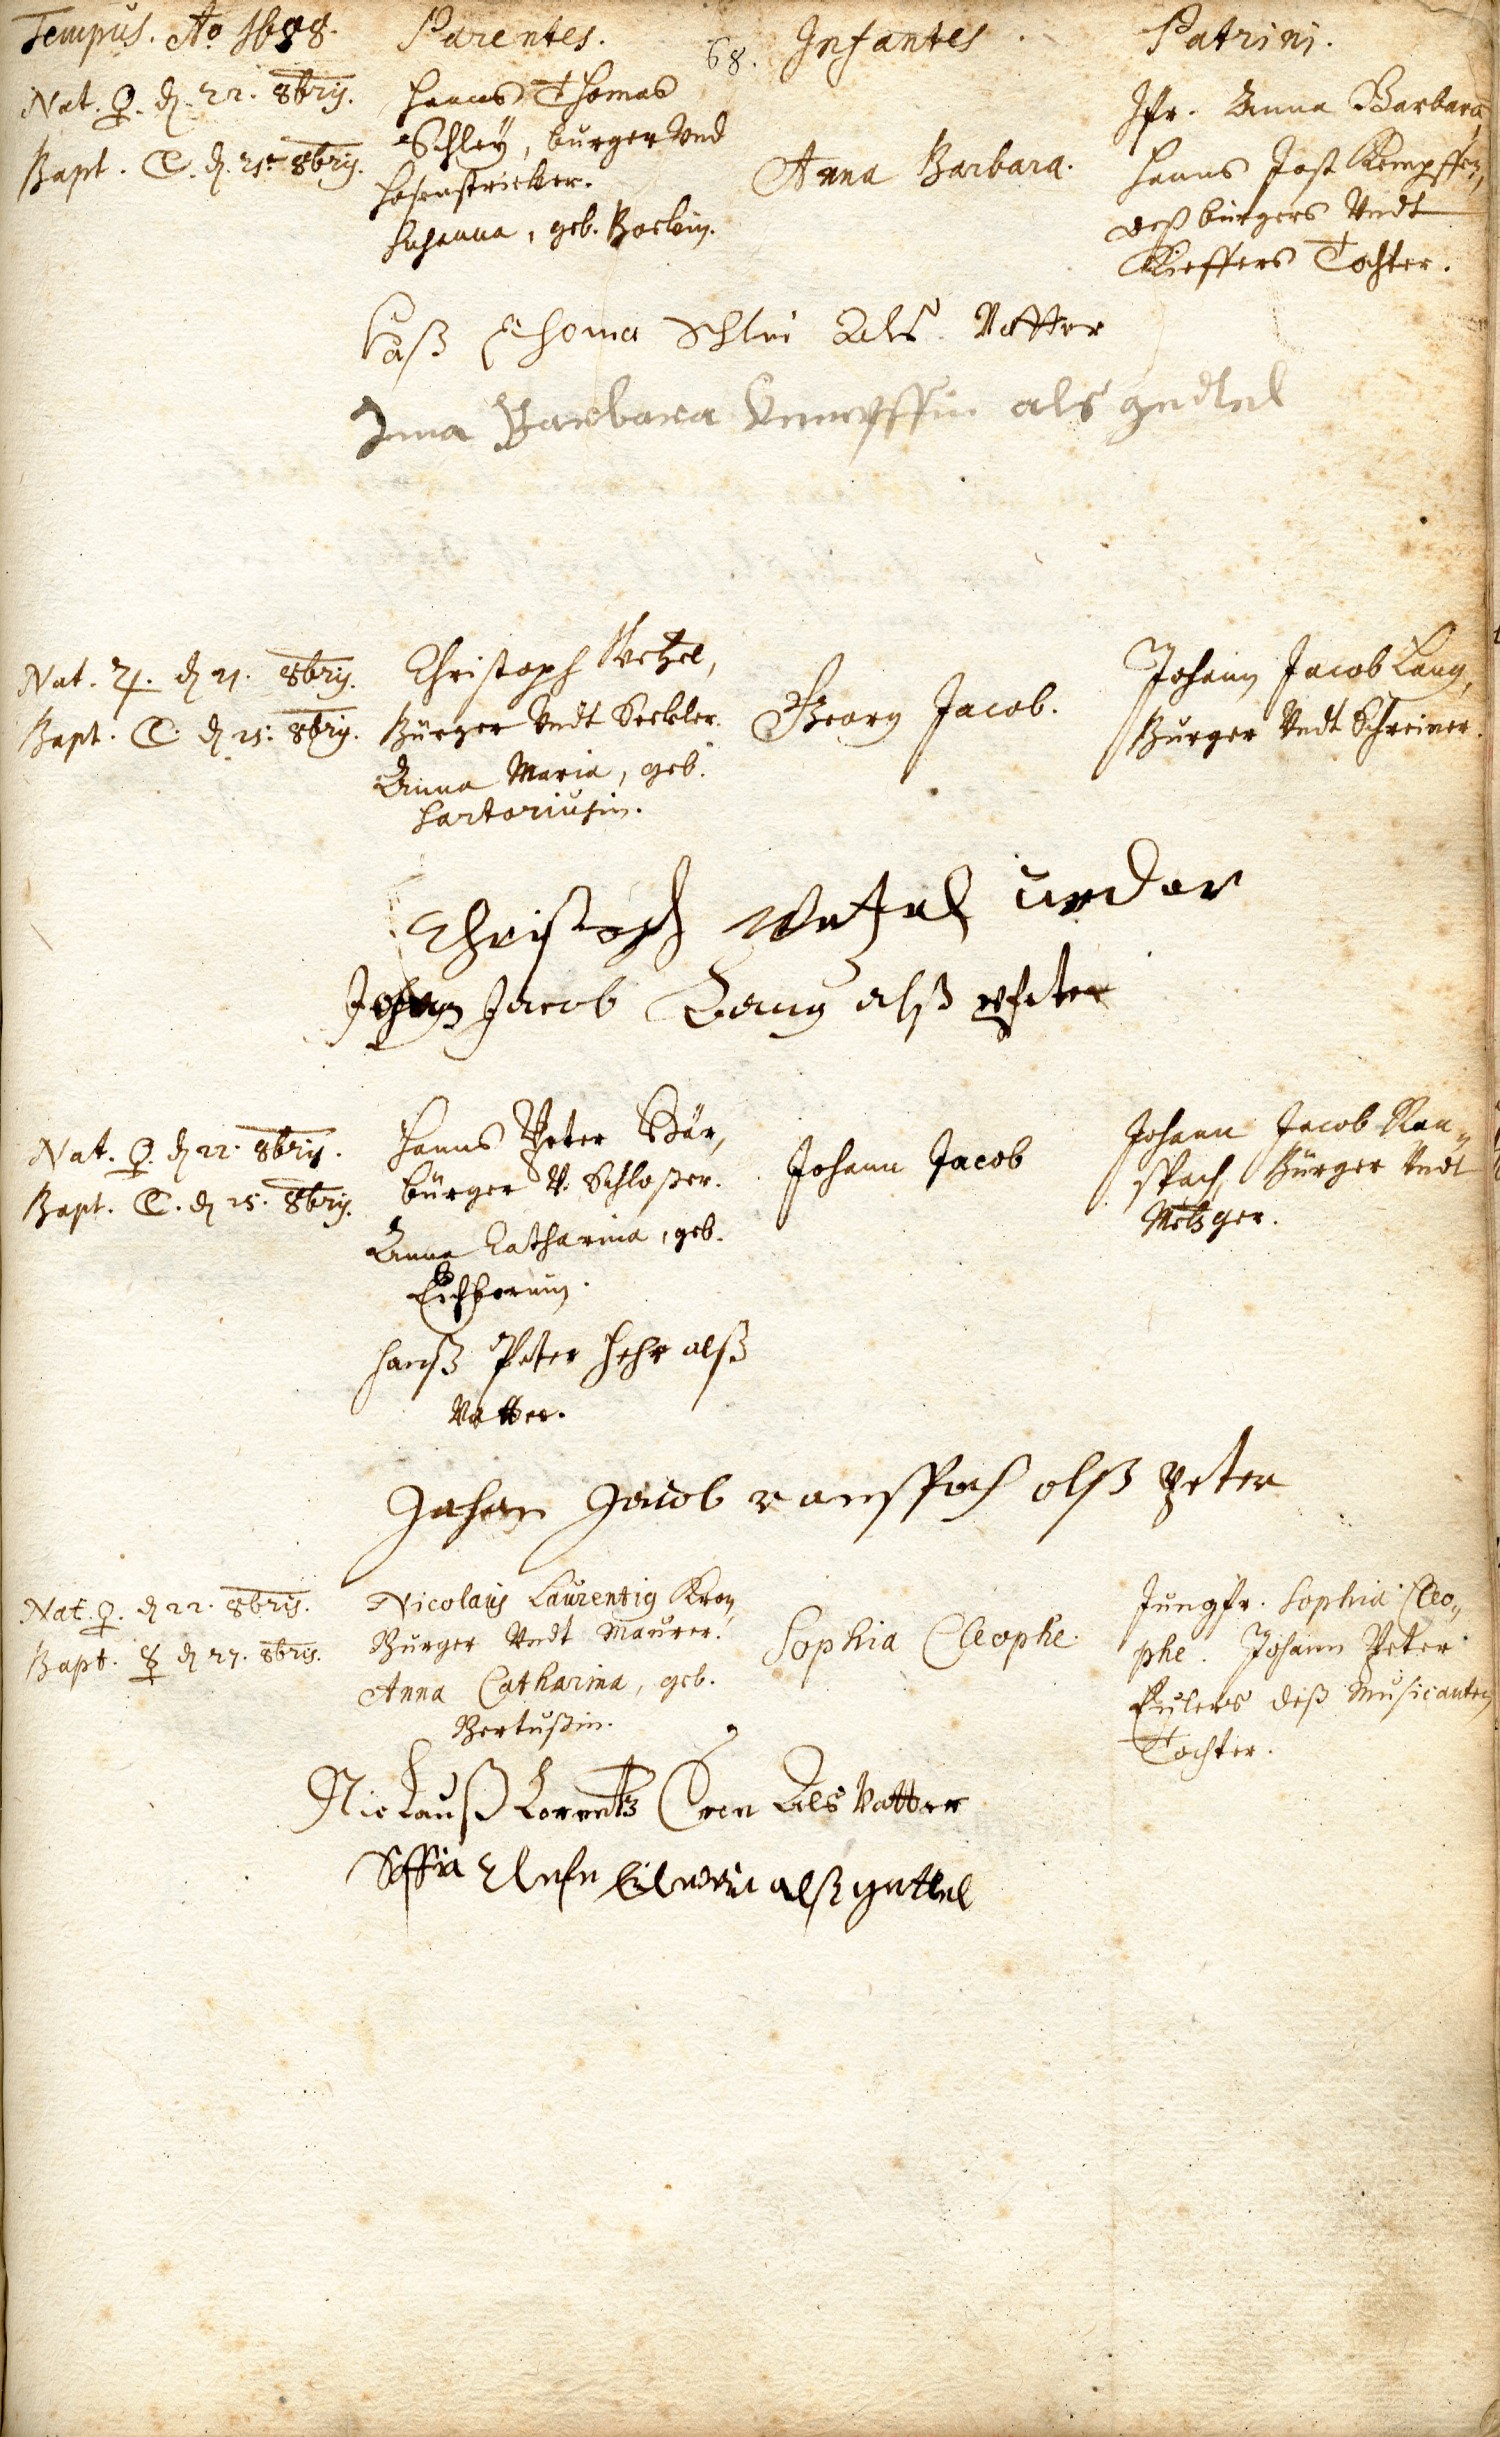 Tempus. Aō 1688.
Parentes.
68.
Infantes
Patrini.
Nat. ♀. d. 22. 8bris.
Bapt. ☾. d. 25. 8bris.
Hanns Thomas
Schley, burger Und
Hosenstricker.
Susanna, geb.
Anna Barbara.
Jfr. Anna Barbara,
Hanns Jost Kempffen,
deß burgers Undt
Kieffers Tochter.
Thoma Schlei Als Vatter
Barbara Kempffin als gedtel
Nat. ♃. d 21. 8bris.
Bapt. ☾. d 25. 8bris.
Christoph Wetzel,
Bürger Undt Seckler.
Anna Maria, geb.
Sartoriusin.
Georg Jacob.
Johann Jacob Lang,
Burger Undt Schreiner.
Christoph Wetzel
Johan Jacob Lang alß
Nat. ♀. d 22. 8bris.
Bapt. ☾. d 25. 8bris.
Hanns Peter Hör,
bürger V. Schloßer.
Anna Catharina, geb.
Johann Jacob
Johann Jacob Ran„
spach, Bürger Undt
Metzger.
Hanß Peter Hehr alß
Vatter.
Johan Jacob ranspach alß peter
Nat. ♀. d 22. 8bris.
Bapt. ☿ d 27. 8bris.
Nicolaus Laurentig Kron,
Burger Undt Maurer.
Anna Catharina, geb.
Bertußin.
Sophia Cleophe.
Jungfr. Sophia Cleo„
phe. Johann Peter
Eulers deß Musicanten
Tochter.
Niclauß Lorentz Cron Als Vatter
Soffia Clefe Eilerin alß gettel